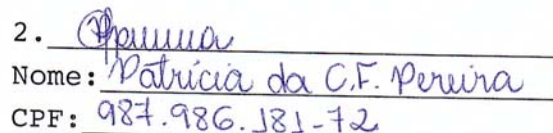 2.
Nome: Patrícia da C.F. Pereira
CPF: 987.986.181-72